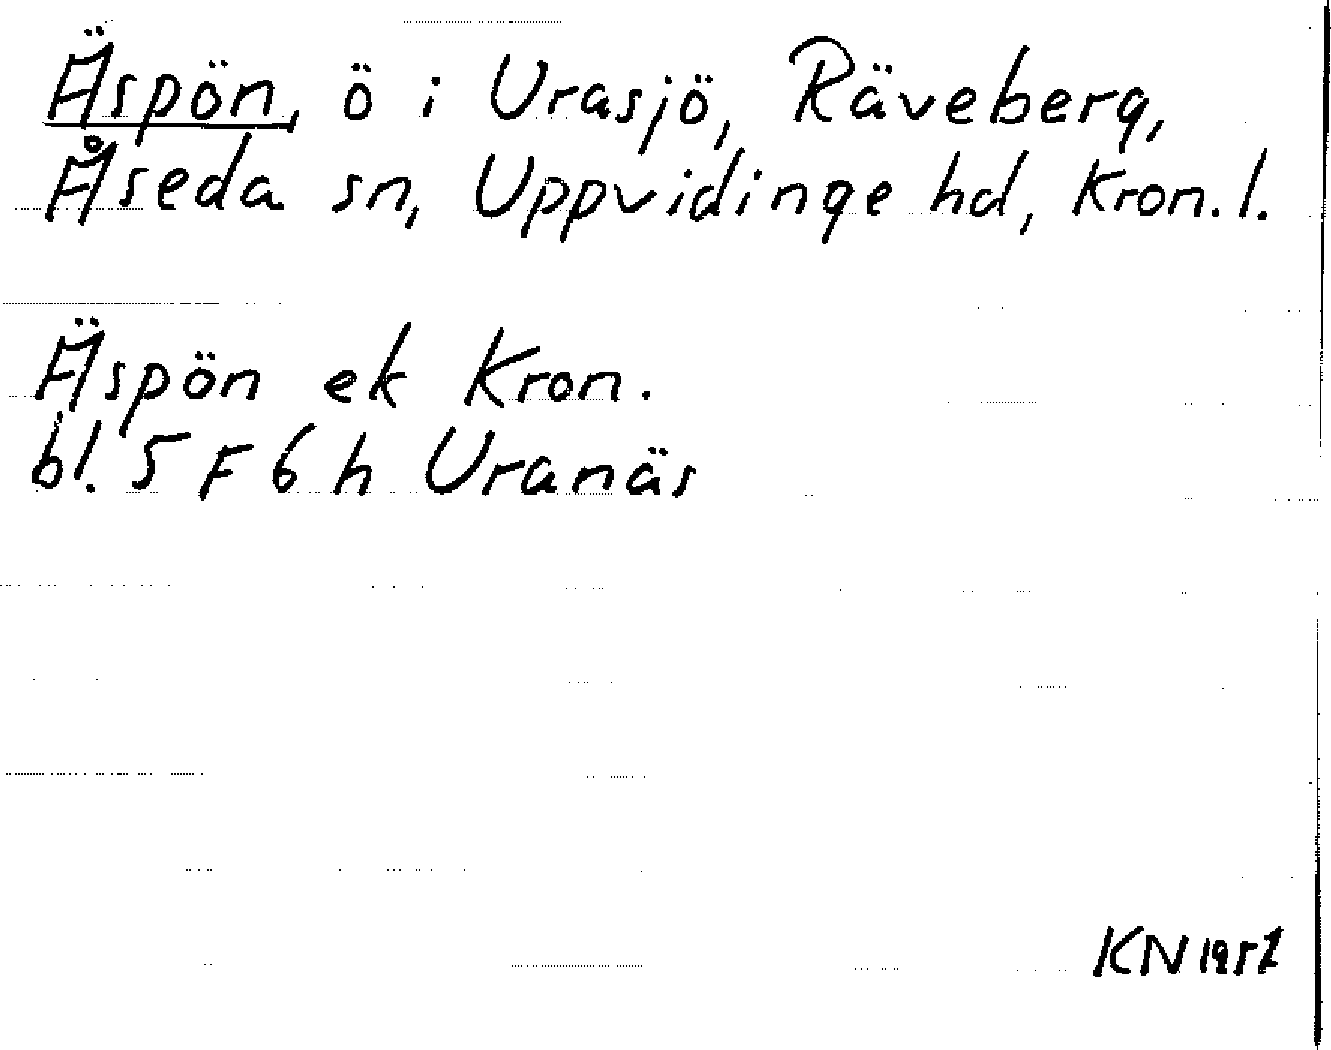 Äspön, ö i Urasjö, Räveberg,
Åseda sn, Uppvidinge hd, Kron. l.
Äspön ek Kron.
bl. 5 F 6 h Uranäs
KN